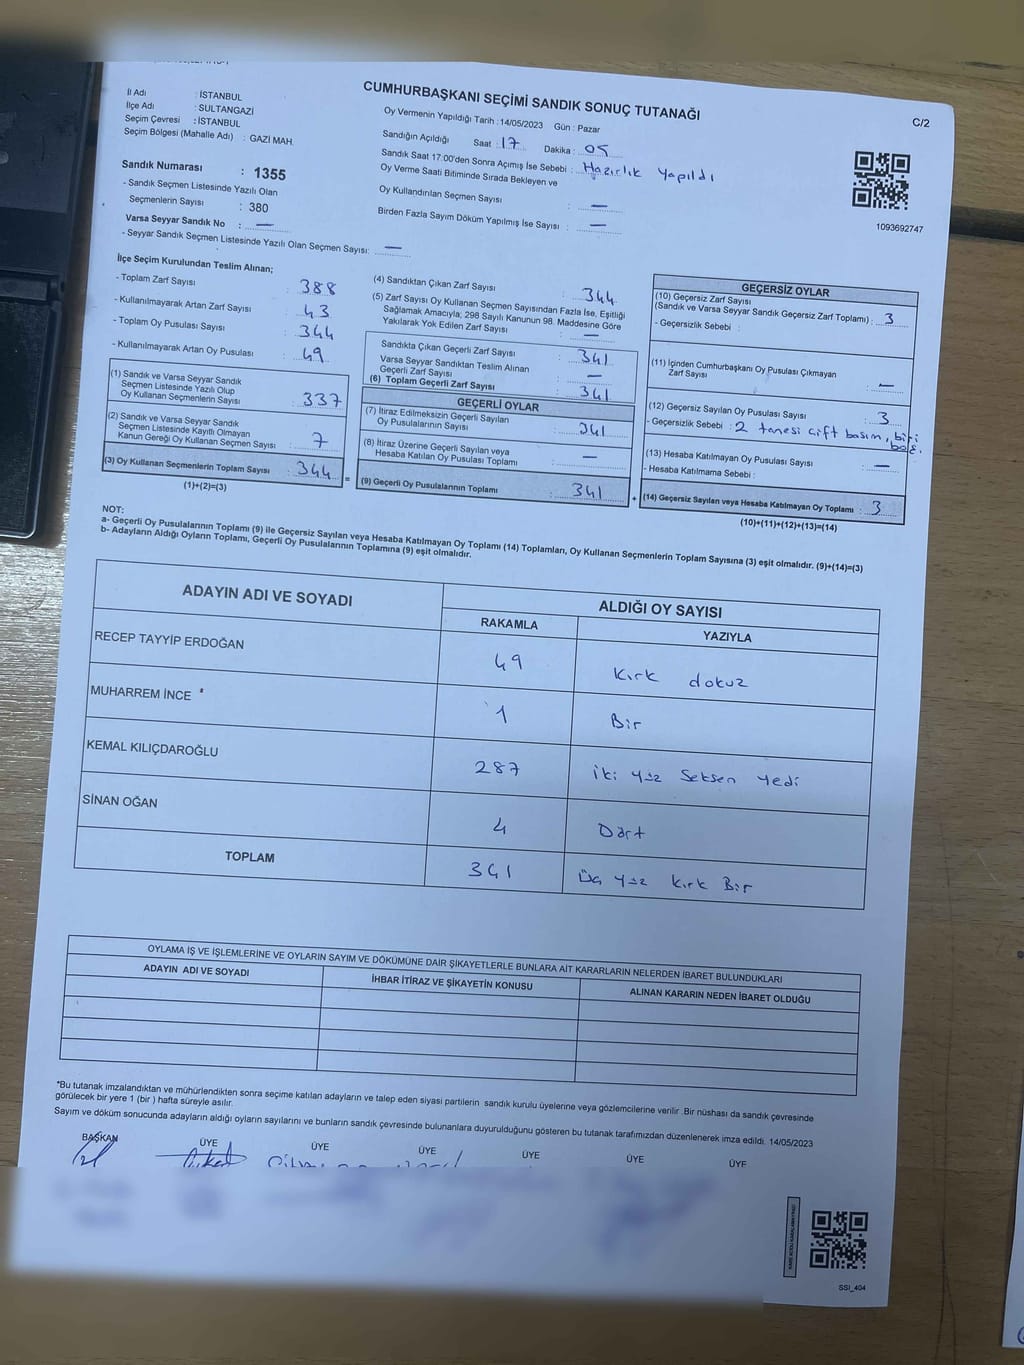 CUMHURBAŞKANI SEÇİMİ SANDIK SONUÇ TUTANAĞI
C/2
İl Adı : İSTANBUL
İlçe Adı : SULTANGAZİ
Seçim Çevresi : İSTANBUL
Seçim Bölgesi (Mahalle Adı) : GAZİ MAH.
Sandık Numarası : 1355
- Sandık Seçmen Listesinde Yazılı Olan
Seçmenlerin Sayısı : 380
Varsa Seyyar Sandık No : —
- Seyyar Sandık Seçmen Listesinde Yazılı Olan Seçmen Sayısı: —
Oy Vermenin Yapıldığı Tarih : 14/05/2023 Gün : Pazar
Sandığın Açıldığı Saat : 17 Dakika : 05
Sandık Saat 17:00'den Sonra Açımış İse Sebebi : Hazırlık yapıldı
Oy Verme Saati Bitiminde Sırada Bekleyen ve
Oy Kullandırılan Seçmen Sayısı : —
Birden Fazla Sayım Döküm Yapılmış İse Sayısı : —
1093692747
İlçe Seçim Kurulundan Teslim Alınan;
- Toplam Zarf Sayısı : 388
- Kullanılmayarak Artan Zarf Sayısı : 43
- Toplam Oy Pusulası Sayısı : 344
- Kullanılmayarak Artan Oy Pusulası : 49
(1) Sandık ve Varsa Seyyar Sandık
Seçmen Listesinde Yazılı Olup
Oy Kullanan Seçmenlerin Sayısı : 337
(2) Sandık ve Varsa Seyyar Sandık
Seçmen Listesinde Kayıtlı Olmayan
Kanun Gereği Oy Kullanan Seçmen Sayısı : 7
(3) Oy Kullanan Seçmenlerin Toplam Sayısı : 344
(1)+(2)=(3)
=
(4) Sandıktan Çıkan Zarf Sayısı : 344
(5) Zarf Sayısı Oy Kullanan Seçmen Sayısından Fazla İse, Eşitliği
Sağlamak Amacıyla; 298 Sayılı Kanunun 98. Maddesine Göre
Yakılarak Yok Edilen Zarf Sayısı : —
Sandıkta Çıkan Geçerli Zarf Sayısı : 341
Varsa Seyyar Sandıktan Teslim Alınan
Geçerli Zarf Sayısı : —
(6) Toplam Geçerli Zarf Sayısı : 341
GEÇERLİ OYLAR
(7) İtiraz Edilmeksizin Geçerli Sayılan
Oy Pusulalarının Sayısı : 341
(8) İtiraz Üzerine Geçerli Sayılan veya
Hesaba Katılan Oy Pusulası Toplamı : —
(9) Geçerli Oy Pusulalarının Toplamı : 341
+
GEÇERSİZ OYLAR
(10) Geçersiz Zarf Sayısı
(Sandık ve Varsa Seyyar Sandık Geçersiz Zarf Toplamı) : 3
- Geçersizlik Sebebi :
(11) İçinden Cumhurbaşkanı Oy Pusulası Çıkmayan
Zarf Sayısı : —
(12) Geçersiz Sayılan Oy Pusulası Sayısı : 3
- Geçersizlik Sebebi : 2 tanesi çift basım, biri
boş.
(13) Hesaba Katılmayan Oy Pusulası Sayısı : —
- Hesaba Katılmama Sebebi :
(14) Geçersiz Sayılan veya Hesaba Katılmayan Oy Toplamı : 3
(10)+(11)+(12)+(13)=(14)
NOT:
a- Geçerli Oy Pusulalarının Toplamı (9) ile Geçersiz Sayılan veya Hesaba Katılmayan Oy Toplamı (14) Toplamları, Oy Kullanan Seçmenlerin Toplam Sayısına (3) eşit olmalıdır. (9)+(14)=(3)
b- Adayların Aldığı Oyların Toplamı, Geçerli Oy Pusulalarının Toplamına (9) eşit olmalıdır.
ADAYIN ADI VE SOYADI ALDIĞI OY SAYISI
RAKAMLA YAZIYLA
RECEP TAYYİP ERDOĞAN 49 Kırk dokuz
MUHARREM İNCE * 1 Bir
KEMAL KILIÇDAROĞLU 287 İki yüz Seksen yedi
SİNAN OĞAN 4 Dört
TOPLAM 341 Üç yüz kırk Bir
OYLAMA İŞ VE İŞLEMLERİNE VE OYLARIN SAYIM VE DÖKÜMÜNE DAİR ŞİKAYETLERLE BUNLARA AİT KARARLARIN NELERDEN İBARET BULUNDUKLARI
ADAYIN ADI VE SOYADI İHBAR İTİRAZ VE ŞİKAYETİN KONUSU ALINAN KARARIN NEDEN İBARET OLDUĞU
*Bu tutanak imzalandıktan ve mühürlendikten sonra seçime katılan adayların ve talep eden siyasi partilerin sandık kurulu üyelerine veya gözlemcilerine verilir. Bir nüshası da sandık çevresinde
görülecek bir yere 1 (bir ) hafta süreyle asılır.
Sayım ve döküm sonucunda adayların aldığı oyların sayılarını ve bunların sandık çevresinde bulunanlara duyurulduğunu gösteren bu tutanak tarafımızdan düzenlenerek imza edildi. 14/05/2023
BAŞKAN ÜYE ÜYE ÜYE ÜYE ÜYE ÜYE
SSI_404